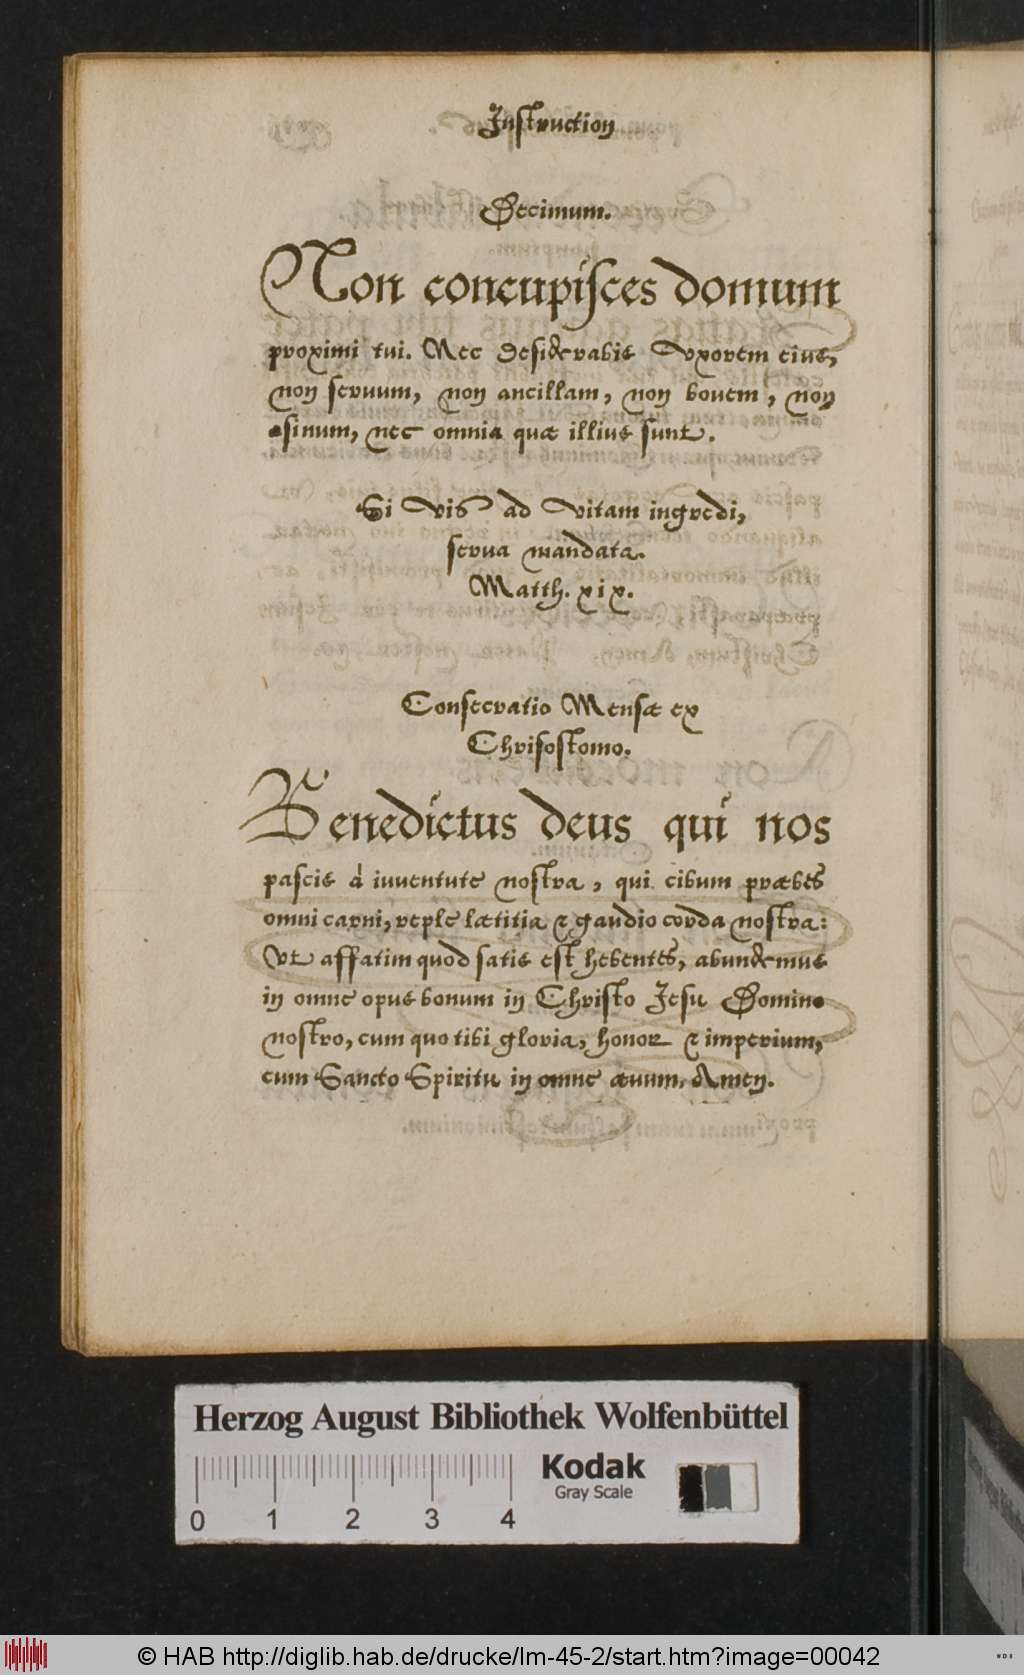 Instruction
Decimum.
Non concupisces domum
proximi tui. Nec desiderabis Vxorem eius,
non seruum, non ancillam, non bouem, non
asinum, nec omnia quæ illius sunt.
Si vis ad vitam ingredi,
serua mandata.
Matth. xix.
Consecratio Mensæ ex
Chrisostomo.
Benedictus deus qui nos
pascis à iuuentute nostra, qui cibum præbes
omni carni, reple lætitia & gaudio corda nostra:
Vt affatim quod satis est hebentes, abundemus
in omne opus bonum in Christo Jesu Domino
nostro, cum quo tibi gloria, honor & imperium,
cum Sancto Spiritu in omne æuum. Amen.
Herzog August Bibliothek Wolfenbüttel
Kodak
Gray Scale
0 1 2 3 4
© HAB http://diglib.hab.de/drucke/lm-45-2/start.htm?image=00042